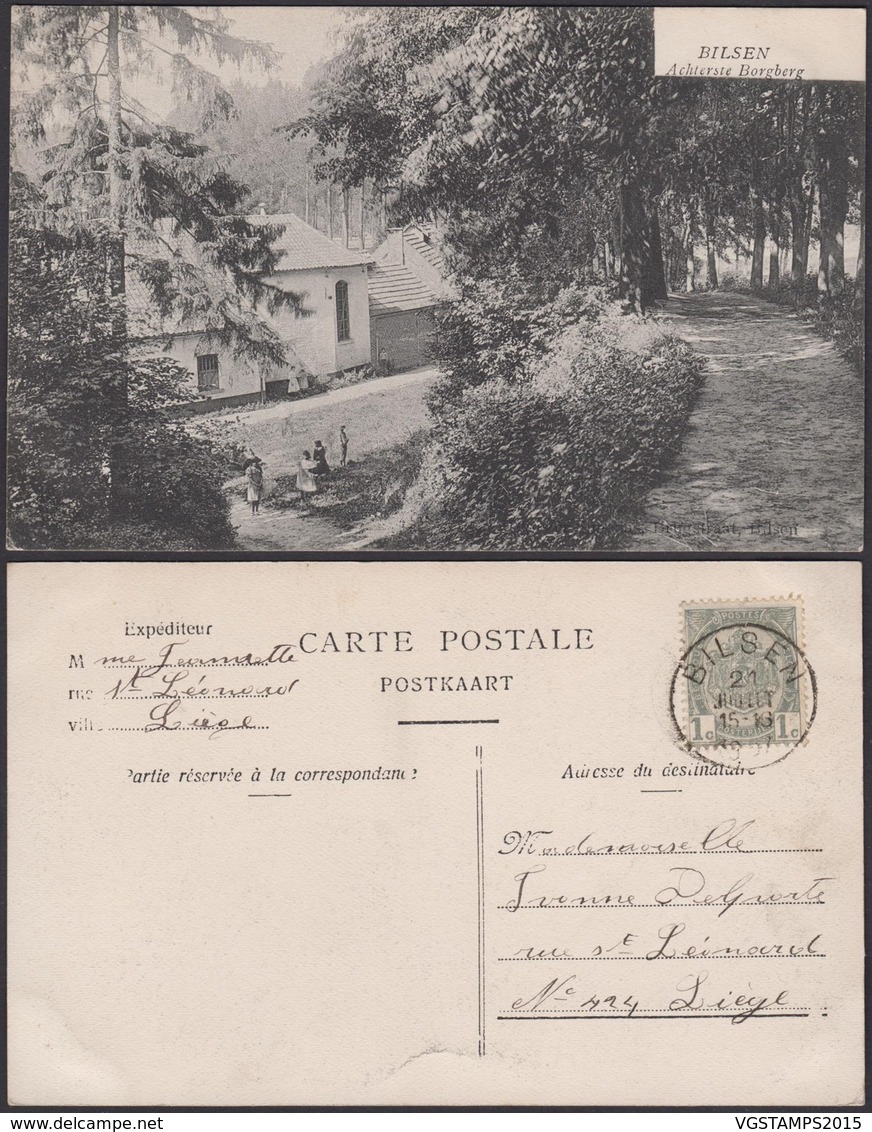 BILSEN
Achterste Borgberg
straat, Bilsen
Expéditeur
CARTE POSTALE
Mme
rue St Léonard
POSTKAART
ville Liège
Partie réservée à la correspondance
Adresse du destinataire
POSTES
BILSEN
21
JUILLET
15-16
1c 1c
Mademoiselle
Yvonne Delporte
rue St Léonard
No 424 Liège
www.delcampe.net
VGSTAMPS2015